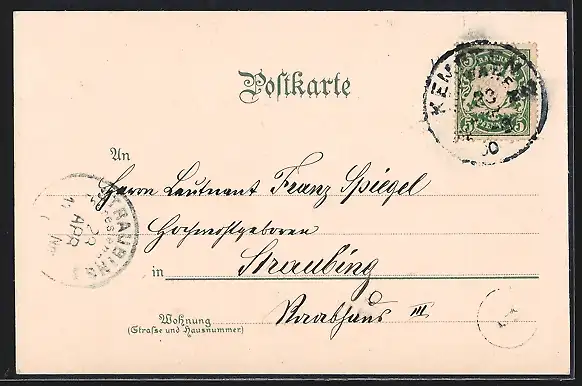 Postkarte
BAYERN
KEMPTEN
23
5 PFENNIG 5
An
Herrn Leutnant Franz Spiegel
Hochwohlgeboren
in Straubing
Wohnung
(Straße und Hausnummer)
III
STRAUBING
23
APR